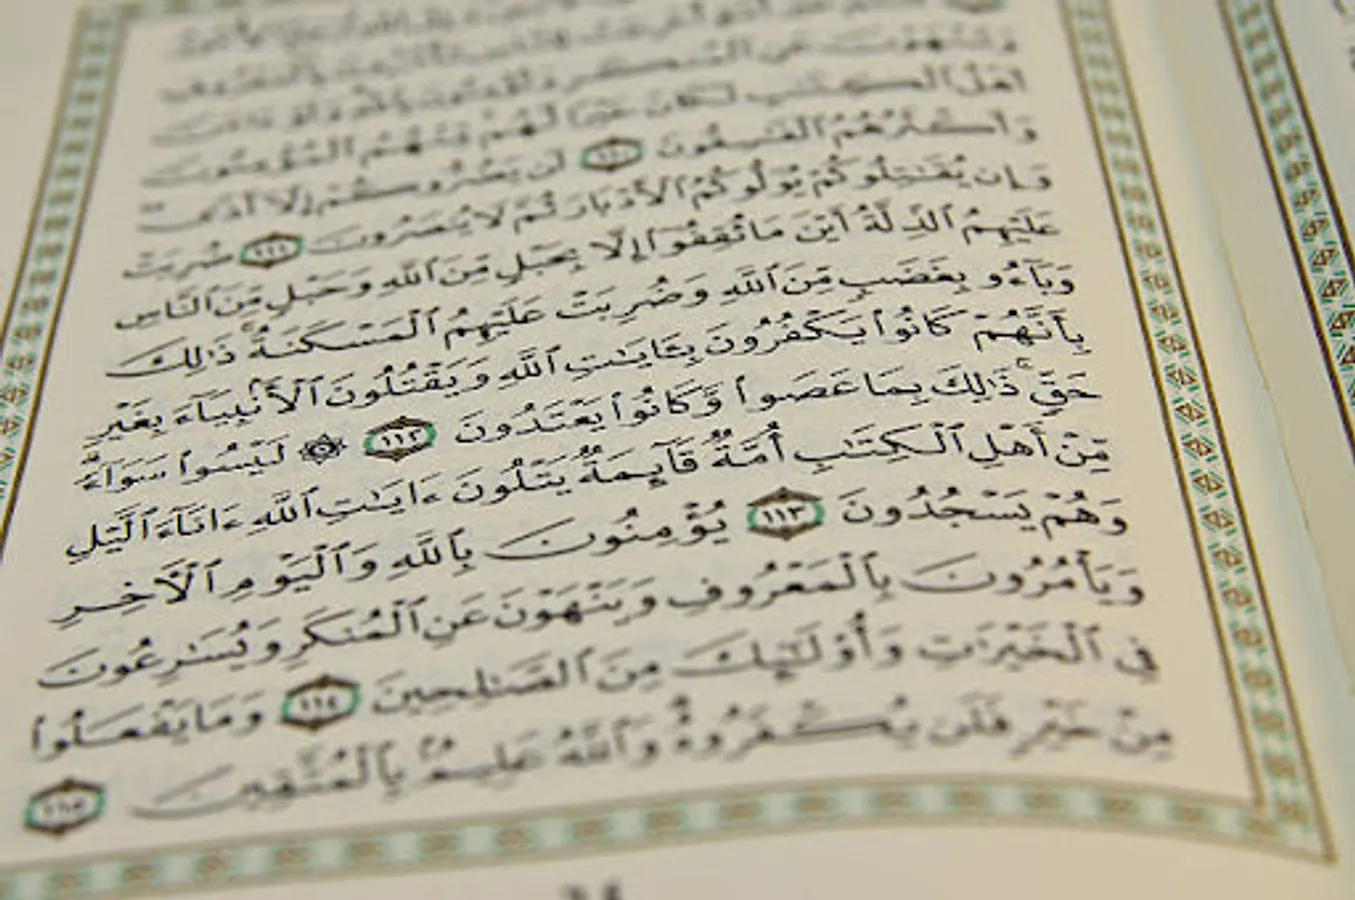 وَتَنْهَوْنَ عَنِ ٱلْمُنكَرِ وَتُؤْمِنُونَ بِٱللَّهِ وَلَوْ ءَامَنَ
أَهْلُ ٱلْكِتَٰبِ لَكَانَ خَيْرًا لَّهُم مِّنْهُمُ ٱلْمُؤْمِنُونَ
وَأَكْثَرُهُمُ ٱلْفَٰسِقُونَ ١١٠ لَن يَضُرُّوكُمْ إِلَّآ أَذًى
وَإِن يُقَٰتِلُوكُمْ يُوَلُّوكُمُ ٱلْأَدْبَارَ ثُمَّ لَا يُنصَرُونَ ١١١ ضُرِبَتْ
عَلَيْهِمُ ٱلذِّلَّةُ أَيْنَ مَا ثُقِفُوٓا۟ إِلَّا بِحَبْلٍ مِّنَ ٱللَّهِ وَحَبْلٍ مِّنَ ٱلنَّاسِ
وَبَآءُو بِغَضَبٍ مِّنَ ٱللَّهِ وَضُرِبَتْ عَلَيْهِمُ ٱلْمَسْكَنَةُ ۚ ذَٰلِكَ
بِأَنَّهُمْ كَانُوا۟ يَكْفُرُونَ بِـَٔايَٰتِ ٱللَّهِ وَيَقْتُلُونَ ٱلْأَنۢبِيَآءَ بِغَيْرِ
حَقٍّ ۚ ذَٰلِكَ بِمَا عَصَوا۟ وَّكَانُوا۟ يَعْتَدُونَ ١١٢ ۞ لَيْسُوا۟ سَوَآءً ۗ
مِّنْ أَهْلِ ٱلْكِتَٰبِ أُمَّةٌ قَآئِمَةٌ يَتْلُونَ ءَايَٰتِ ٱللَّهِ ءَانَآءَ ٱلَّيْلِ
وَهُمْ يَسْجُدُونَ ١١٣ يُؤْمِنُونَ بِٱللَّهِ وَٱلْيَوْمِ ٱلْءَاخِرِ
وَيَأْمُرُونَ بِٱلْمَعْرُوفِ وَيَنْهَوْنَ عَنِ ٱلْمُنكَرِ وَيُسَٰرِعُونَ
فِى ٱلْخَيْرَٰتِ وَأُو۟لَٰٓئِكَ مِنَ ٱلصَّٰلِحِينَ ١١٤ وَمَا يَفْعَلُوا۟
مِنْ خَيْرٍ فَلَن يُكْفَرُوهُ ۗ وَٱللَّهُ عَلِيمٌۢ بِٱلْمُتَّقِينَ ١١٥